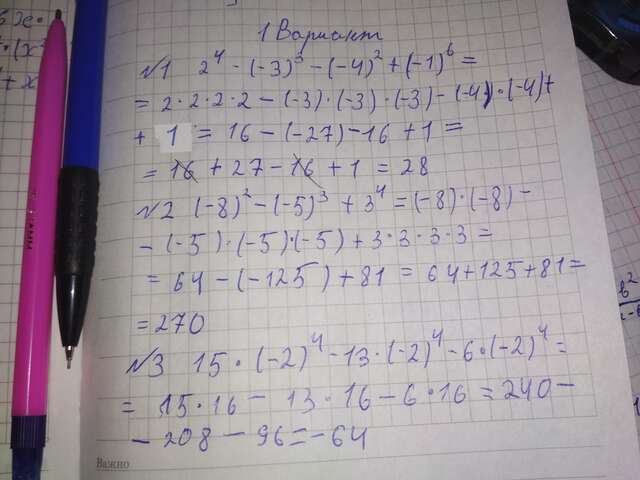 1 Вариант
№1 2⁴ - (-3)³ - (-4)² + (-1)⁶ =
= 2 · 2 · 2 · 2 - (-3) · (-3) · (-3) - (-4) · (-4) +
+ 1 = 16 - (-27) - 16 + 1 =
= 16 + 27 - 16 + 1 = 28
№2 (-8)² - (-5)³ + 3⁴ = (-8) · (-8) -
- (-5) · (-5) · (-5) + 3 · 3 · 3 · 3 =
= 64 - (-125) + 81 = 64 + 125 + 81 =
= 270
№3 15 · (-2)⁴ - 13 · (-2)⁴ - 6 · (-2)⁴ =
= 15 · 16 - 13 · 16 - 6 · 16 = 240 -
- 208 - 96 = -64
Важно